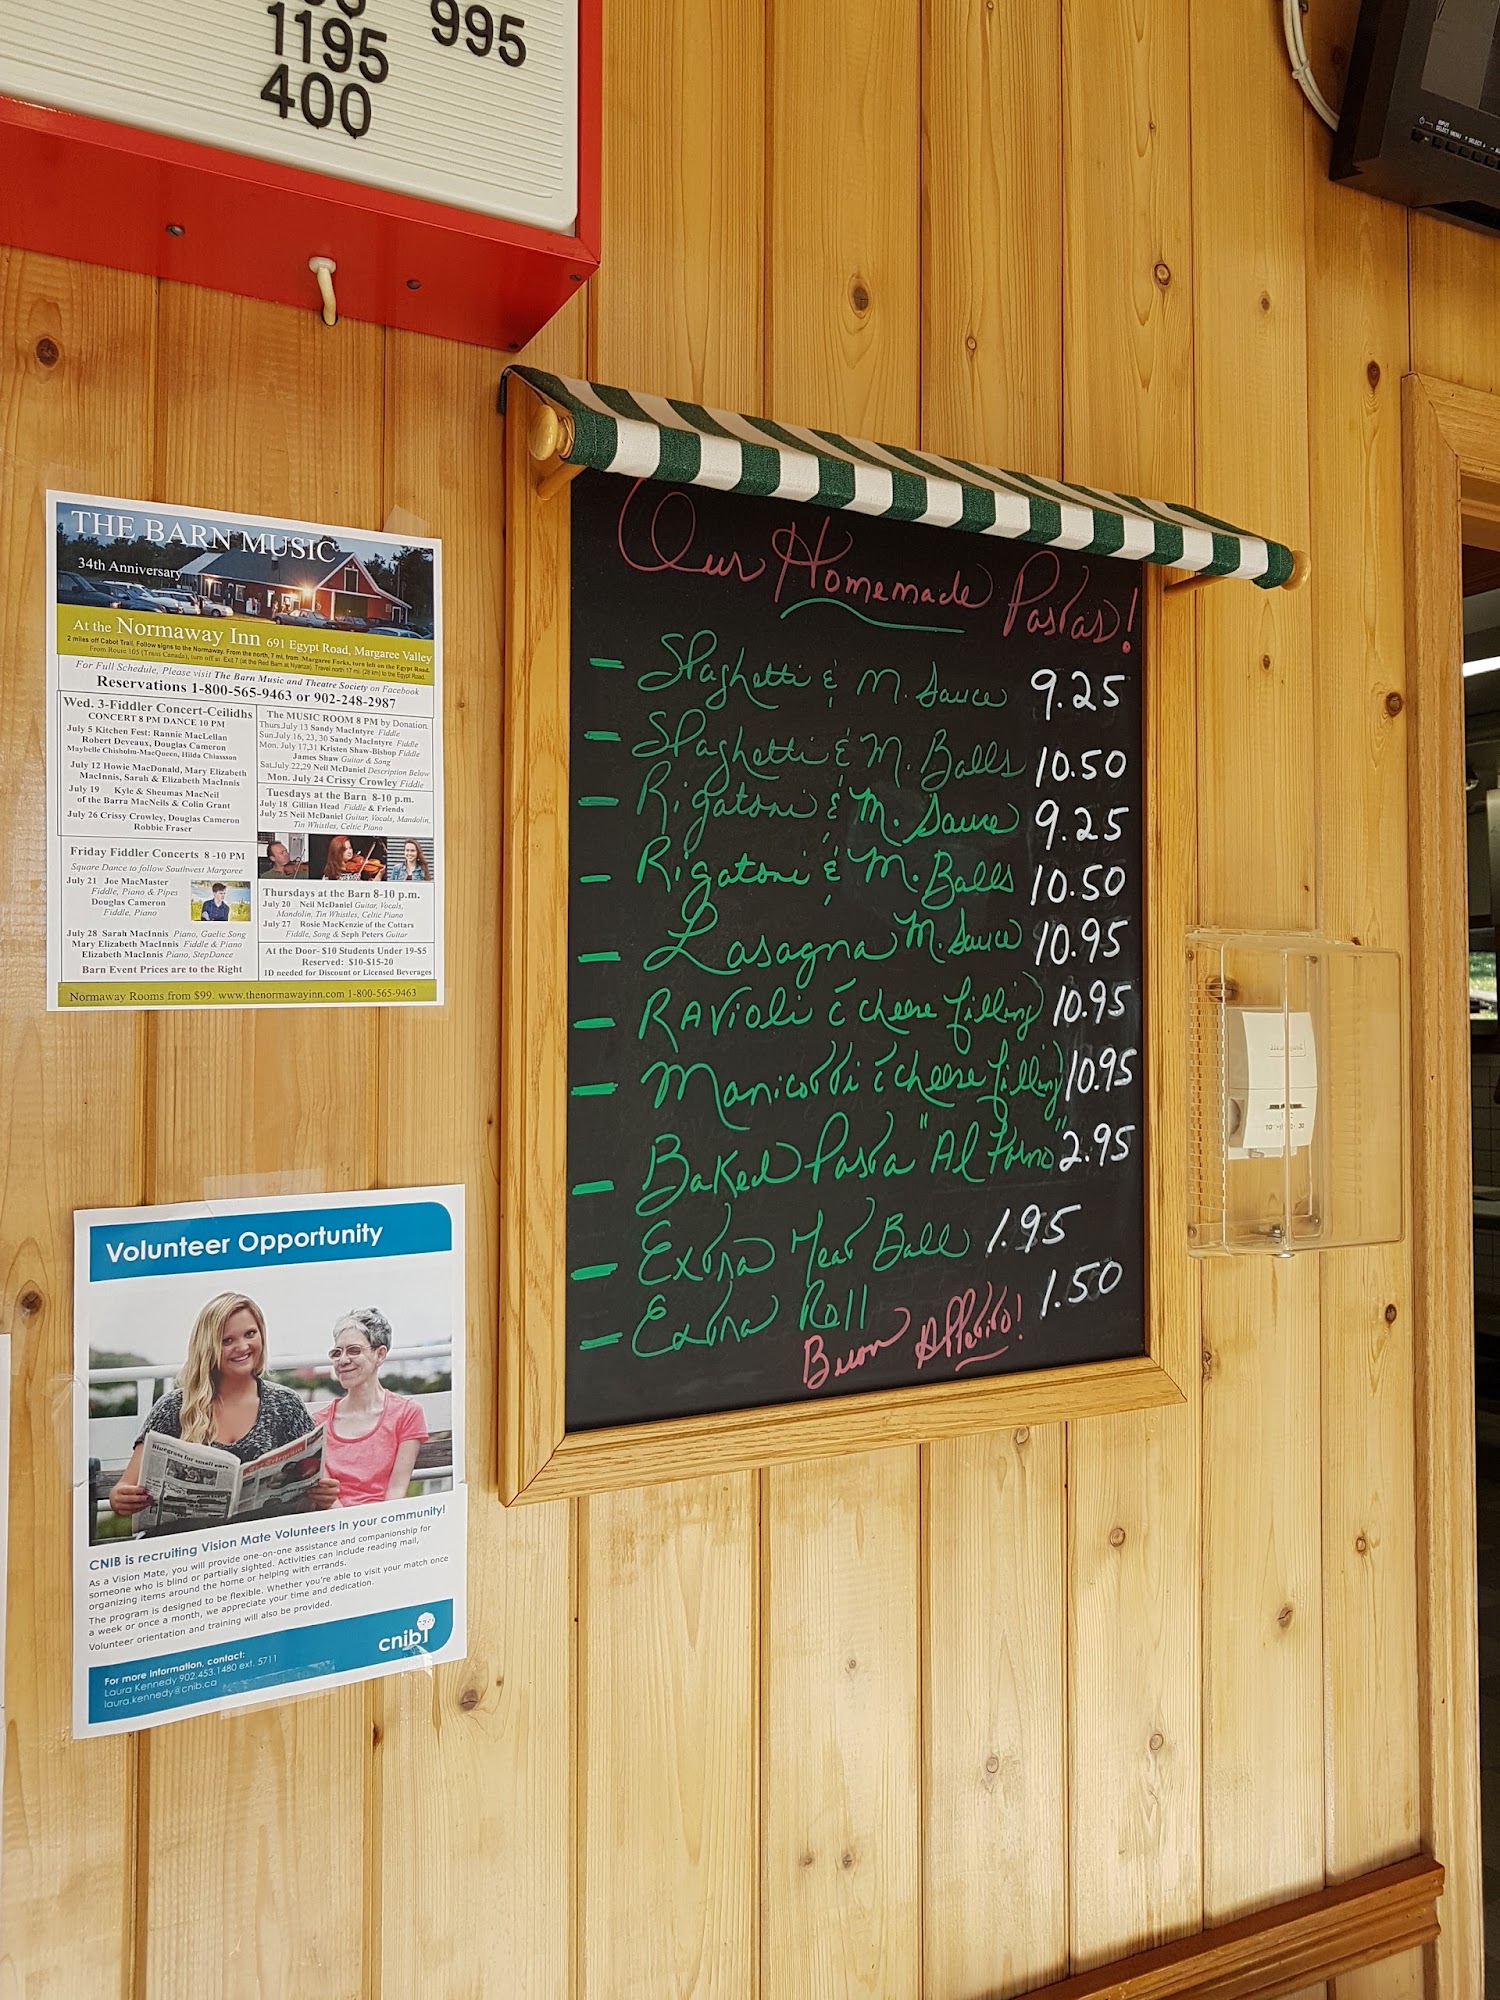 995
1195
400
THE BARN MUSIC
34th Anniversary
At the Normaway Inn 691 Egypt Road, Margaree Valley
2 miles off Cabot Trail. Follow signs to the Normaway. From the north, 7 mi. from Margaree Forks, turn left on the Egypt Road.
From Route 105 (Trans Canada), turn off at Exit 7 (at the Red Barn at Nyanza). Travel north 17 mi. (28 km) to the Egypt Road.
For Full Schedule, Please visit The Barn Music and Theatre Society on Facebook
Reservations 1-800-565-9463 or 902-248-2987
Wed. 3-Fiddler Concert-Ceilidhs
CONCERT 8 PM DANCE 10 PM
July 5 Kitchen Fest: Rannie MacLellan
Robert Deveaux, Douglas Cameron
Maybelle Chisholm-MacQueen, Hilda Chiassson
July 12 Howie MacDonald, Mary Elizabeth
MacInnis, Sarah & Elizabeth MacInnis
July 19 Kyle & Sheumas MacNeil
of the Barra MacNeils & Colin Grant
July 26 Crissy Crowley, Douglas Cameron
Robbie Fraser
Friday Fiddler Concerts 8 -10 PM
Square Dance to follow Southwest Margaree
July 21 Joe MacMaster
Fiddle, Piano & Pipes
Douglas Cameron
Fiddle, Piano
July 28 Sarah MacInnis Piano, Gaelic Song
Mary Elizabeth MacInnis Fiddle & Piano
Elizabeth MacInnis Piano, StepDance
Barn Event Prices are to the Right
The MUSIC ROOM 8 PM by Donation
Thurs.July 13 Sandy MacIntyre Fiddle
Sun.July 16, 23, 30 Sandy MacIntyre Fiddle
Mon. July 17,31 Kristen Shaw-Bishop Fiddle
James Shaw Guitar & Song
Sat.July 22,29 Neil McDaniel Description Below
Mon. July 24 Crissy Crowley Fiddle
Tuesdays at the Barn 8-10 p.m.
July 18 Gillian Head Fiddle & Friends
July 25 Neil McDaniel Guitar, Vocals, Mandolin,
Tin Whistles, Celtic Piano
Thursdays at the Barn 8-10 p.m.
July 20 Neil McDaniel Guitar, Vocals,
Mandolin, Tin Whistles, Celtic Piano
July 27 Rosie MacKenzie of the Cottars
Fiddle, Song & Seph Peters Guitar
At the Door- $10 Students Under 19-$5
Reserved: $10-$15-20
ID needed for Discount or Licensed Beverages
Normaway Rooms from $99. www.thenormawayinn.com 1-800-565-9463
Our Homemade Pastas!
- Spaghetti & M. Sauce 9.25
- Spaghetti & M. Balls 10.50
- Rigatoni & M. Sauce 9.25
- Rigatoni & M. Balls 10.50
- Lasagna M. Sauce 10.95
- Ravioli c̄ cheese filling 10.95
- Manicotti c̄ cheese filling 10.95
- Baked Pasta "Al Forno" 2.95
- Extra Meat Ball 1.95
- Extra Roll 1.50
Buon Appetito!
Volunteer Opportunity
Bluegrass for small ears
CNIB is recruiting Vision Mate Volunteers in your community!
As a Vision Mate, you will provide one-on-one assistance and companionship for
someone who is blind or partially sighted. Activities can include reading mail,
organizing items around the home or helping with errands.
The program is designed to be flexible. Whether you're able to visit your match once
a week or once a month, we appreciate your time and dedication.
Volunteer orientation and training will also be provided.
For more information, contact:
Laura Kennedy 902.453.1480 ext. 5711
laura.kennedy@cnib.ca
cnib